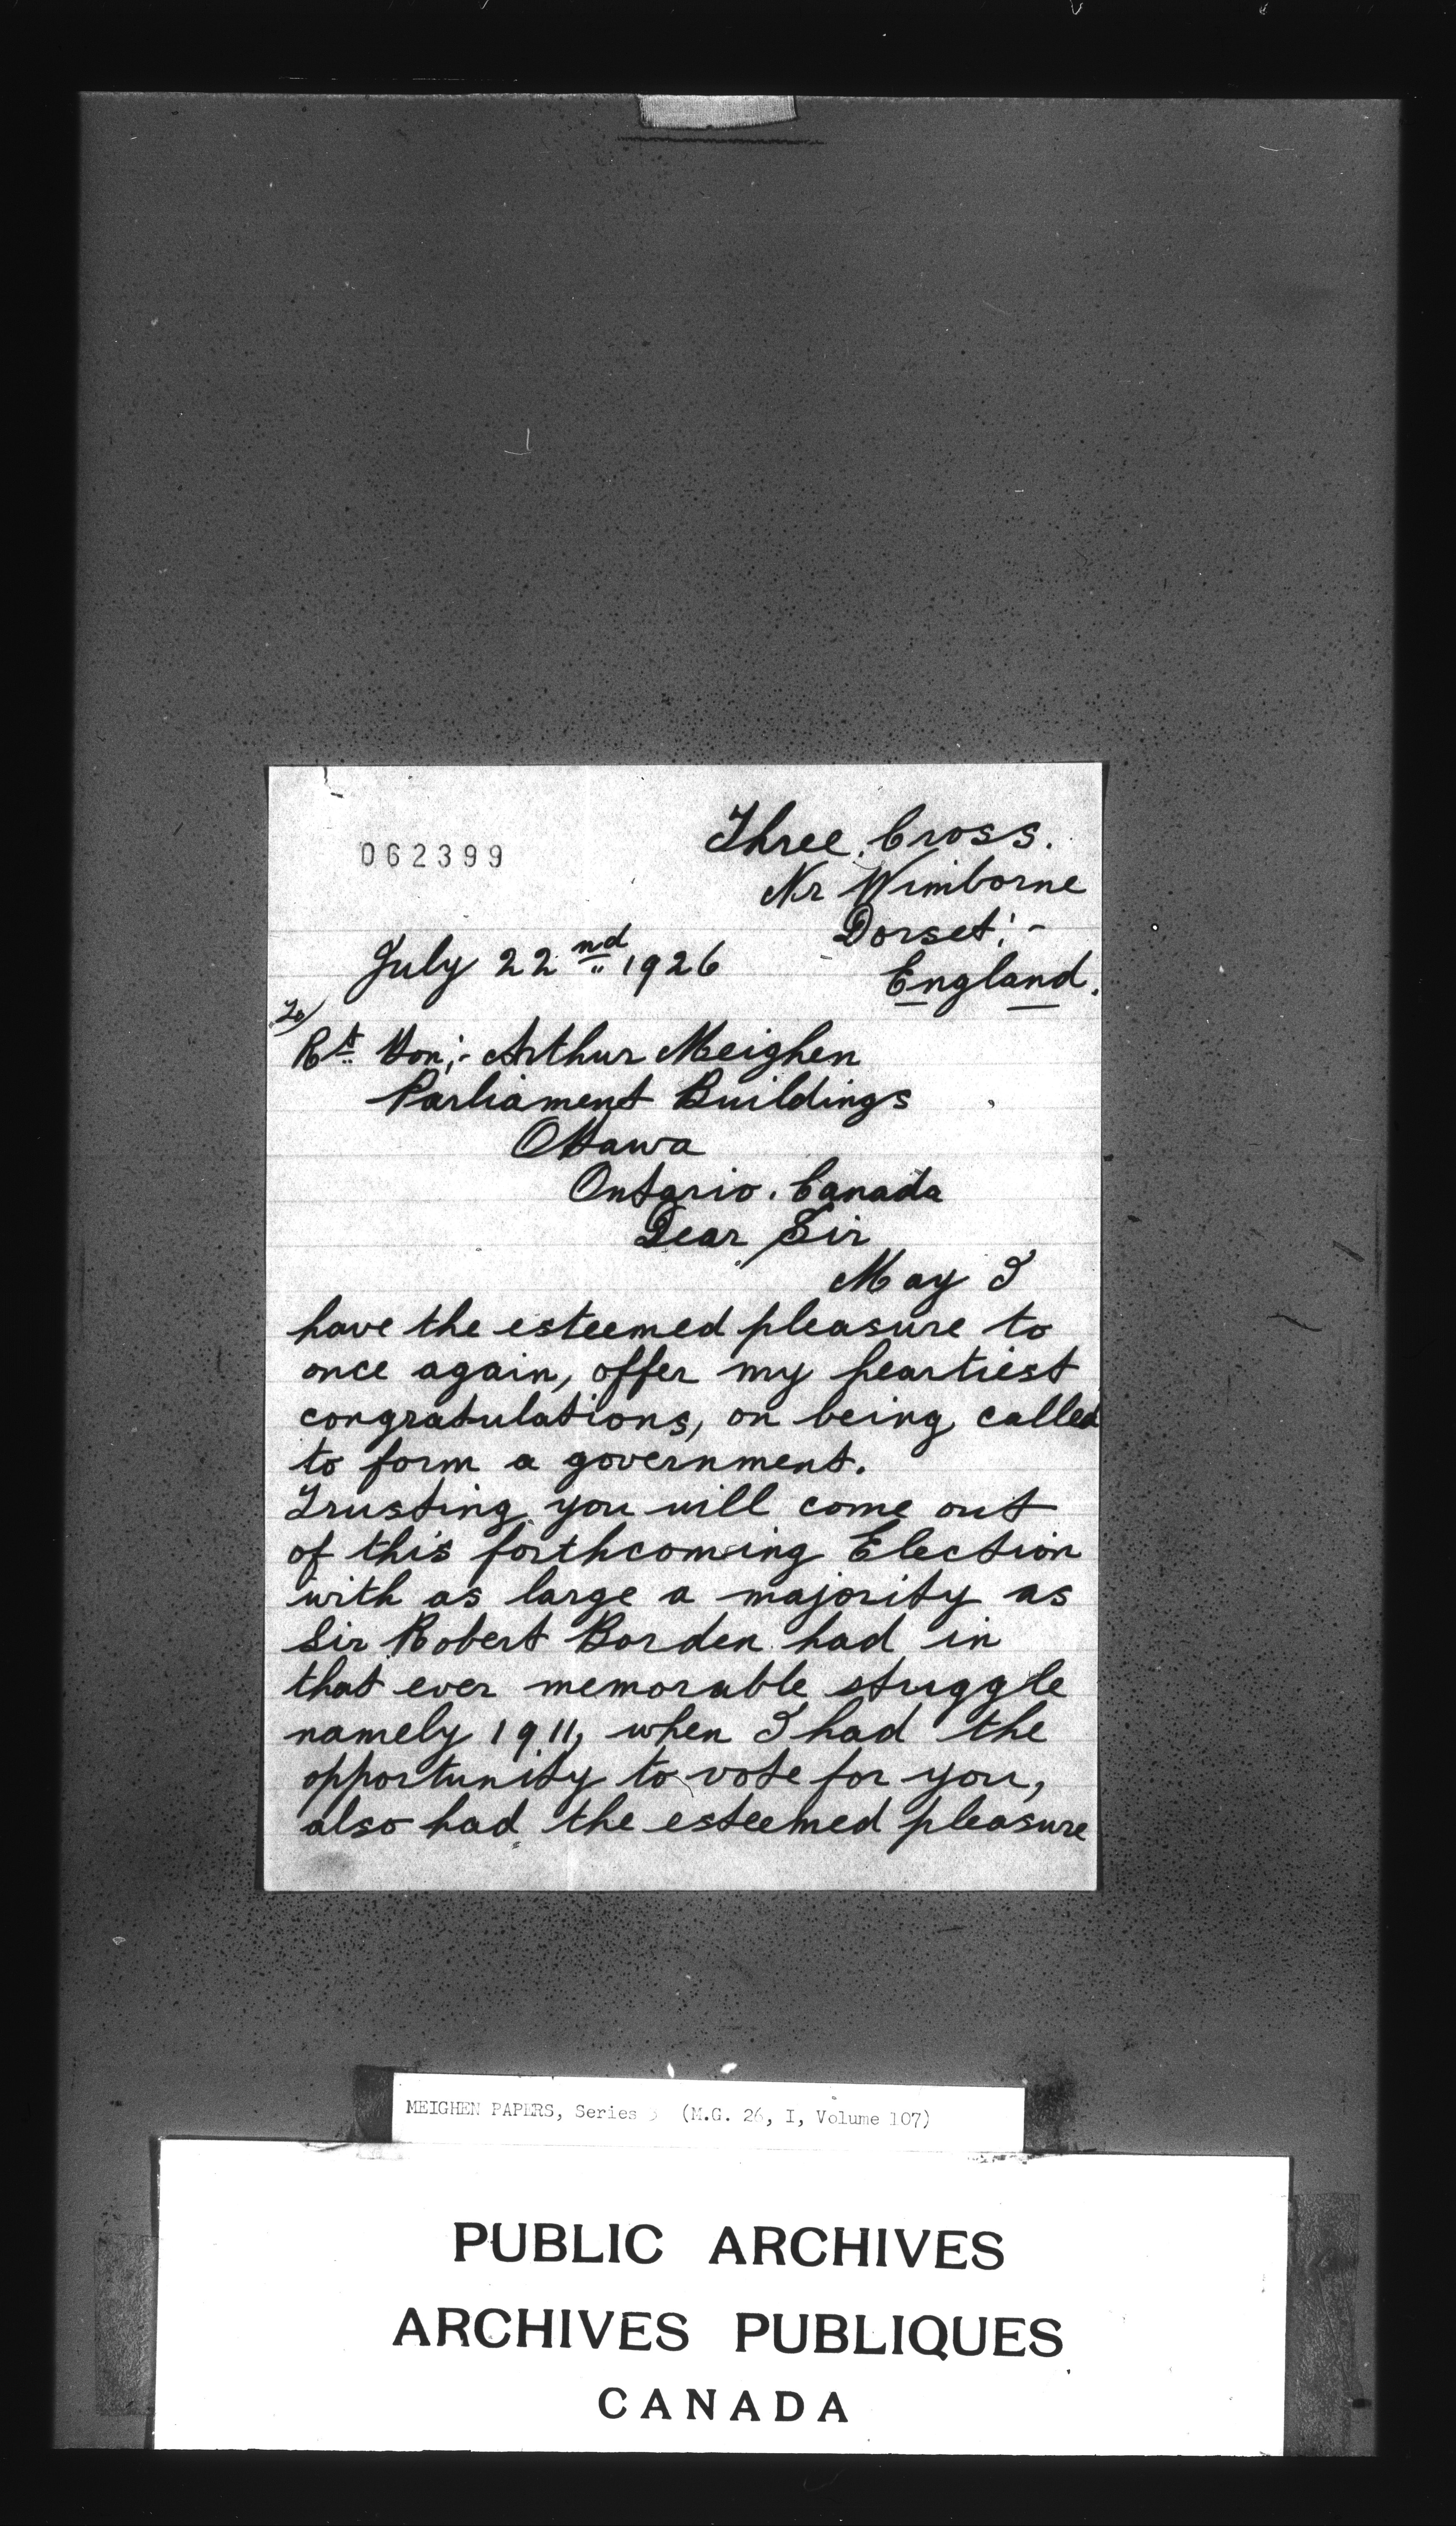 062399
Three Cross.
Nr Wimborne
Dorset:-
England.
July 22nd 1926
To/
Rt Hon;- Arthur Meighen
Parliament Buildings
Ottawa
Ontario. Canada
Dear Sir
May I
have the esteemed pleasure to
once again, offer my heartiest
congratulations, on being called
to form a government.
Trusting you will come out
of this forthcoming Election
with as large a majority as
Sir Robert Borden had in
that ever memorable stuggle
namely 1911, when I had the
opportunity to vote for you,
also had the esteemed pleasure
MEIGHEN PAPERS, Series 3 (M.G. 26, I, Volume 107)
PUBLIC ARCHIVES
ARCHIVES PUBLIQUES
CANADA